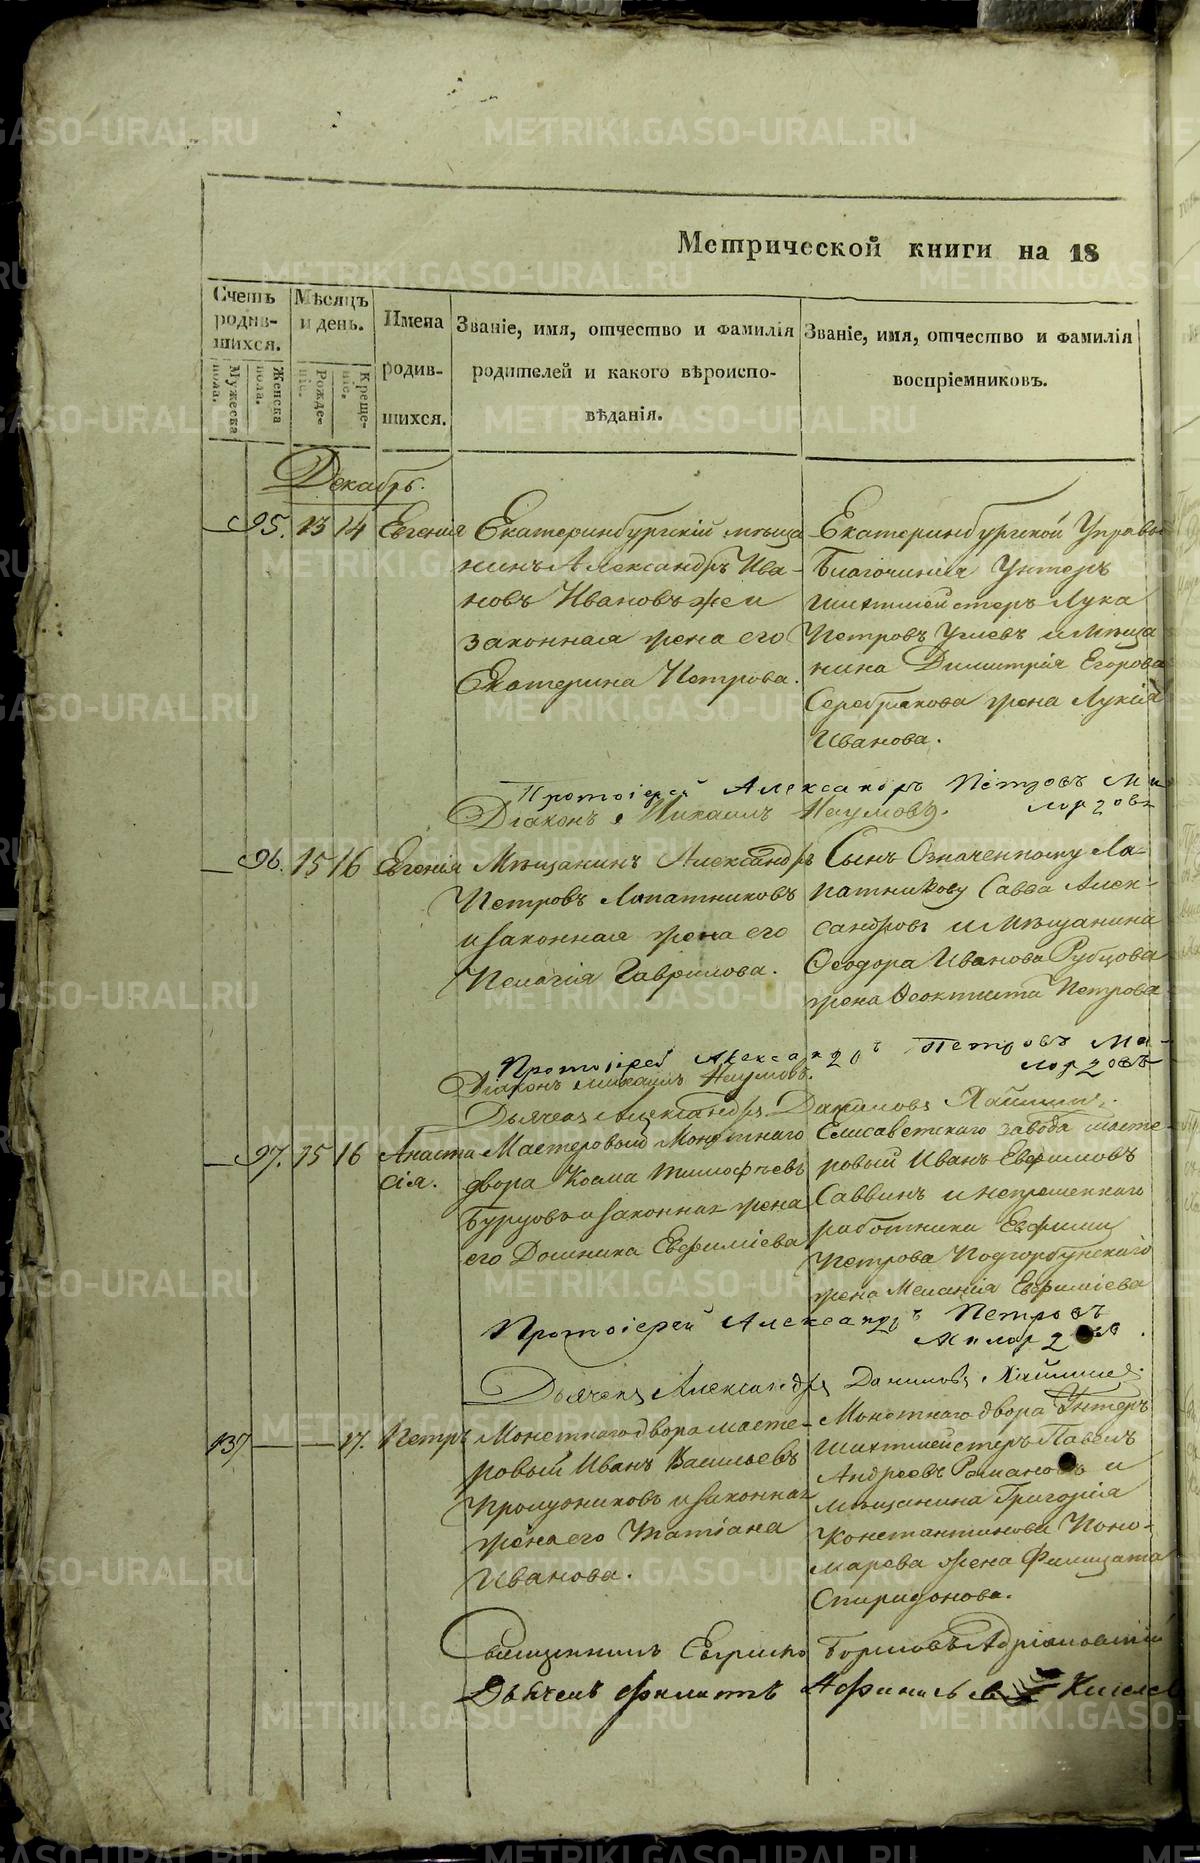 Метрической книги на 18
Счетъ родив-шихся.
Мѣсяцъ и день.
Имена родив-шихся.
Званіе, имя, отчество и фамилія родителей и какого вѣроиспо-вѣданія.
Званіе, имя, отчество и фамилія воспріемниковъ.
Мужеска пола.
Женска пола.
Рожде-ніе.
Креще-ніе.
Декабрь.
95. 13 14 Евгенія
Екатеринбургскій мѣща
нинъ Александръ Ива-
новъ Ивановъ же и
законная жена его
Екатерина Петрова.
Екатеринбургской Управы
Благочинія Унтеръ
шихтмейстеръ Лука
Петровъ и мѣща
нина Димитрія Егорова
Серебрякова жена Лукія
Иванова.
Протоіерей Александръ Петровъ Ми
лорзовъ
Діаконъ Михаилъ Наумовъ.
96. 15 16 Евгенія
Мѣщанинъ Александръ
Петровъ Лопатниковъ
и законная жена его
Пелагія Гаврилова.
Сынъ Означенному Ло-
патникову Савва Алек-
сандровъ и мѣщанина
Ѳеодора Иванова Рубцова
жена Ѳеоктиста Петрова
Протоіерей Александръ Петровъ Ми-
лорзовъ
Діаконъ Михаилъ Наумовъ.
Дьячекъ Александръ Даниловъ
97. 15 16 Анаста
сія.
Мастеровый Монетнаго
двора Косма Тимофѣевъ
Бурцовъ и законная жена
его Домника Евфиміева
Елисаветскаго завода масте-
ровый Иванъ Евфимовъ
Саввинъ и непременнаго
работника Евфима
Петрова Подгорбунскаго
жена Меланія Евфиміева
Протоіерей Александръ Петровъ
Милорзовъ
Дьячекъ Александръ Даниловъ
137 — — 17. Петръ
Монетнаго двора масте-
ровый Иванъ Васильевъ
и законная
жена его Татіана
Иванова.
Монетнаго двора Унтеръ
шихтмейстеръ Павелъ
Андреевъ Романовъ и
мѣщанина Григорія
Константинова Поно-
марева жена Филицата
Спиридонова.
Священникъ
Дьячекъ Филатъ Киселев
METRIKI.GASO-URAL.RU